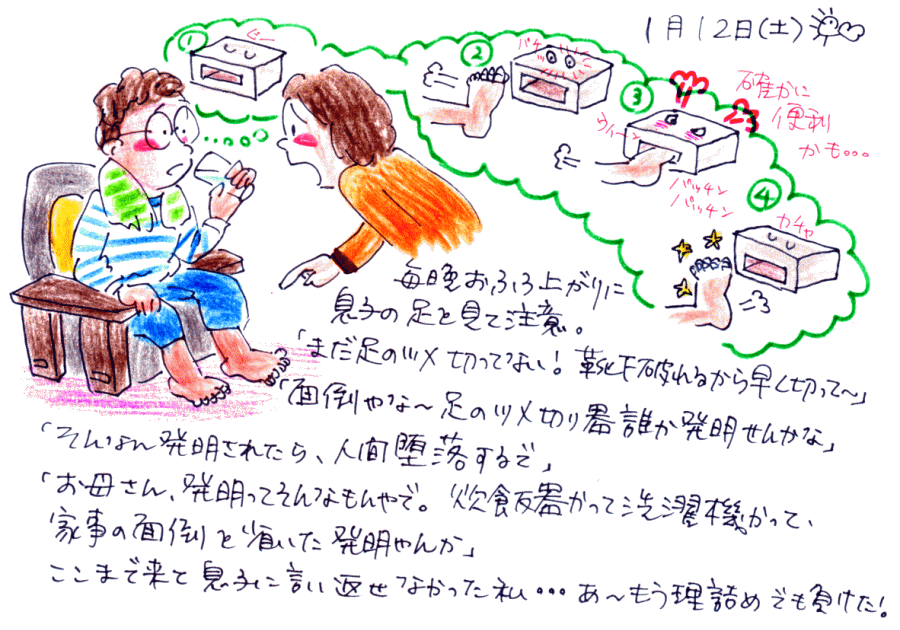 1月12日(土)
①
ぐー
②
パチ
③
ウィーン
パッチン
パッチン
確かに
便利
かも…
④
カチャ
毎晩おふろ上がりに
息子の足を見て注意。
「まだ足のツメ切ってない!靴下破れるから早く切って〜」
「面倒やな〜足のツメ切り器誰か発明せんかな」
「そんなん発明されたら、人間堕落するで」
「お母さん、発明ってそんなもんやで。炊飯器かって洗濯機かって、
家事の面倒を省いた発明やんか」
ここまで来て息子に言い返せなかった私…あ〜もう理詰めでも負けた!